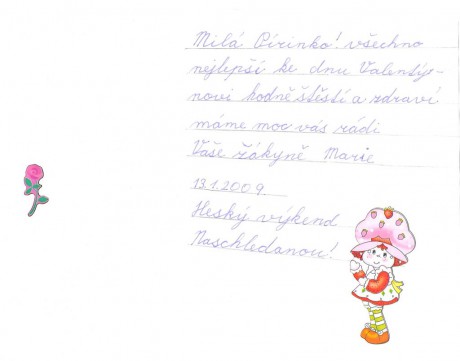 Milá Pírinko! všechno
nejlepší ke dnu Valentýn-
novi hodně štěstí a zdraví
máme moc vás rádi
Vaše žákyně Marie
13.1.2009.
Heský výkend
Naschledanou!